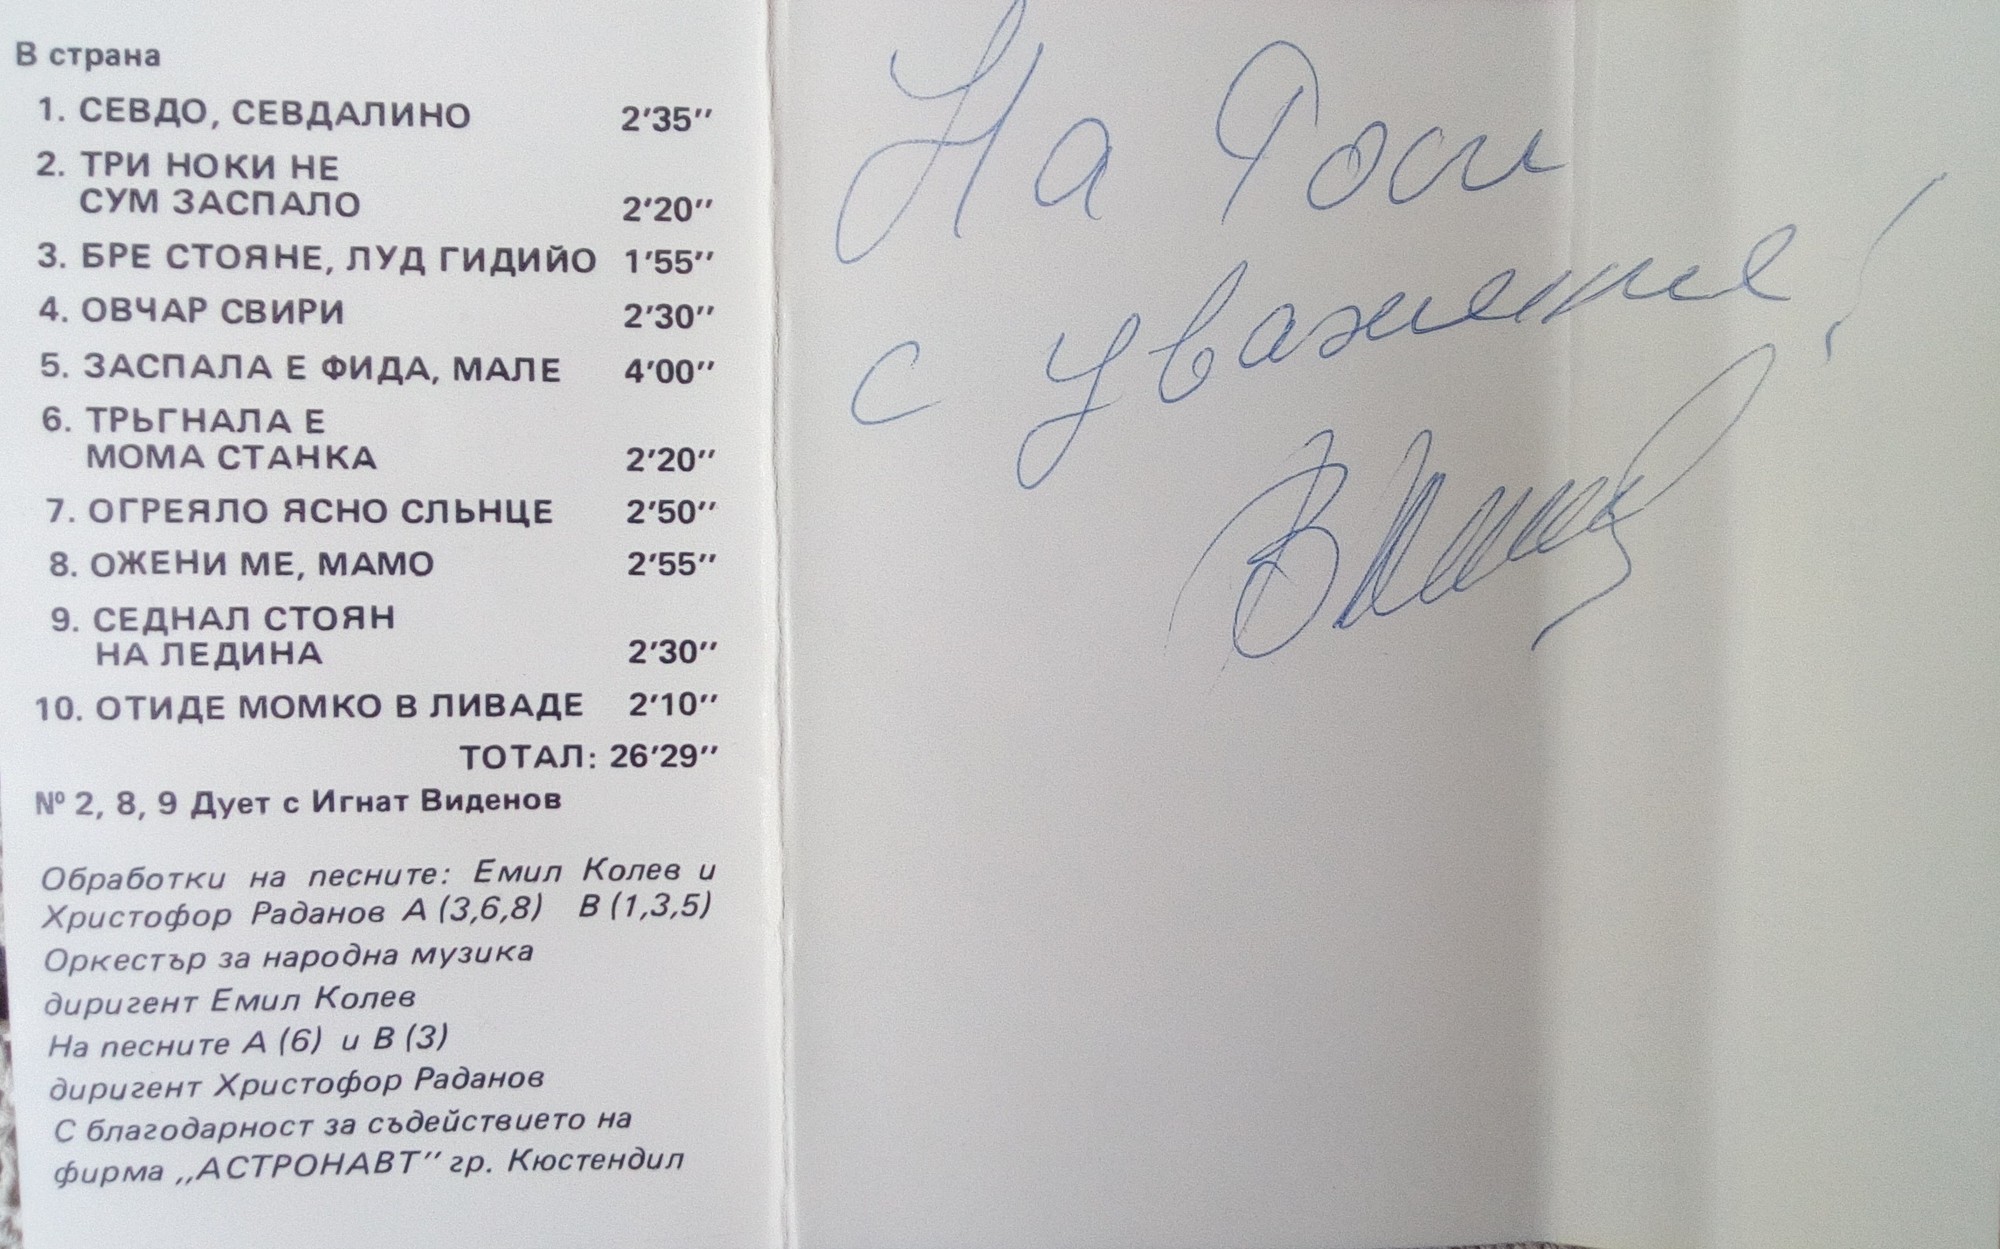 В страна
1. СЕВДО, СЕВДАЛИНО 2'35''
2. ТРИ НОКИ НЕ
СУМ ЗАСПАЛО 2'20''
3. БРЕ СТОЯНЕ, ЛУД ГИДИЙО 1'55''
4. ОВЧАР СВИРИ 2'30''
5. ЗАСПАЛА Е ФИДА, МАЛЕ 4'00''
6. ТРЬГНАЛА Е
МОМА СТАНКА 2'20''
7. ОГРЕЯЛО ЯСНО СЛЬНЦЕ 2'50''
8. ОЖЕНИ МЕ, МАМО 2'55''
9. СЕДНАЛ СТОЯН
НА ЛЕДИНА 2'30''
10. ОТИДЕ МОМКО В ЛИВАДЕ 2'10''
ТОТАЛ: 26'29''
Nº 2, 8, 9 Дует с Игнат Виденов
Обработки на песните: Емил Колев и
Христофор Раданов А (3,6,8) В (1,3,5)
Оркестър за народна музика
диригент Емил Колев
На песните А (6) и В (3)
диригент Христофор Раданов
С благодарност за съдействието на
фирма ,,АСТРОНАВТ'' гр. Кюстендил
На Роси
с уважение!